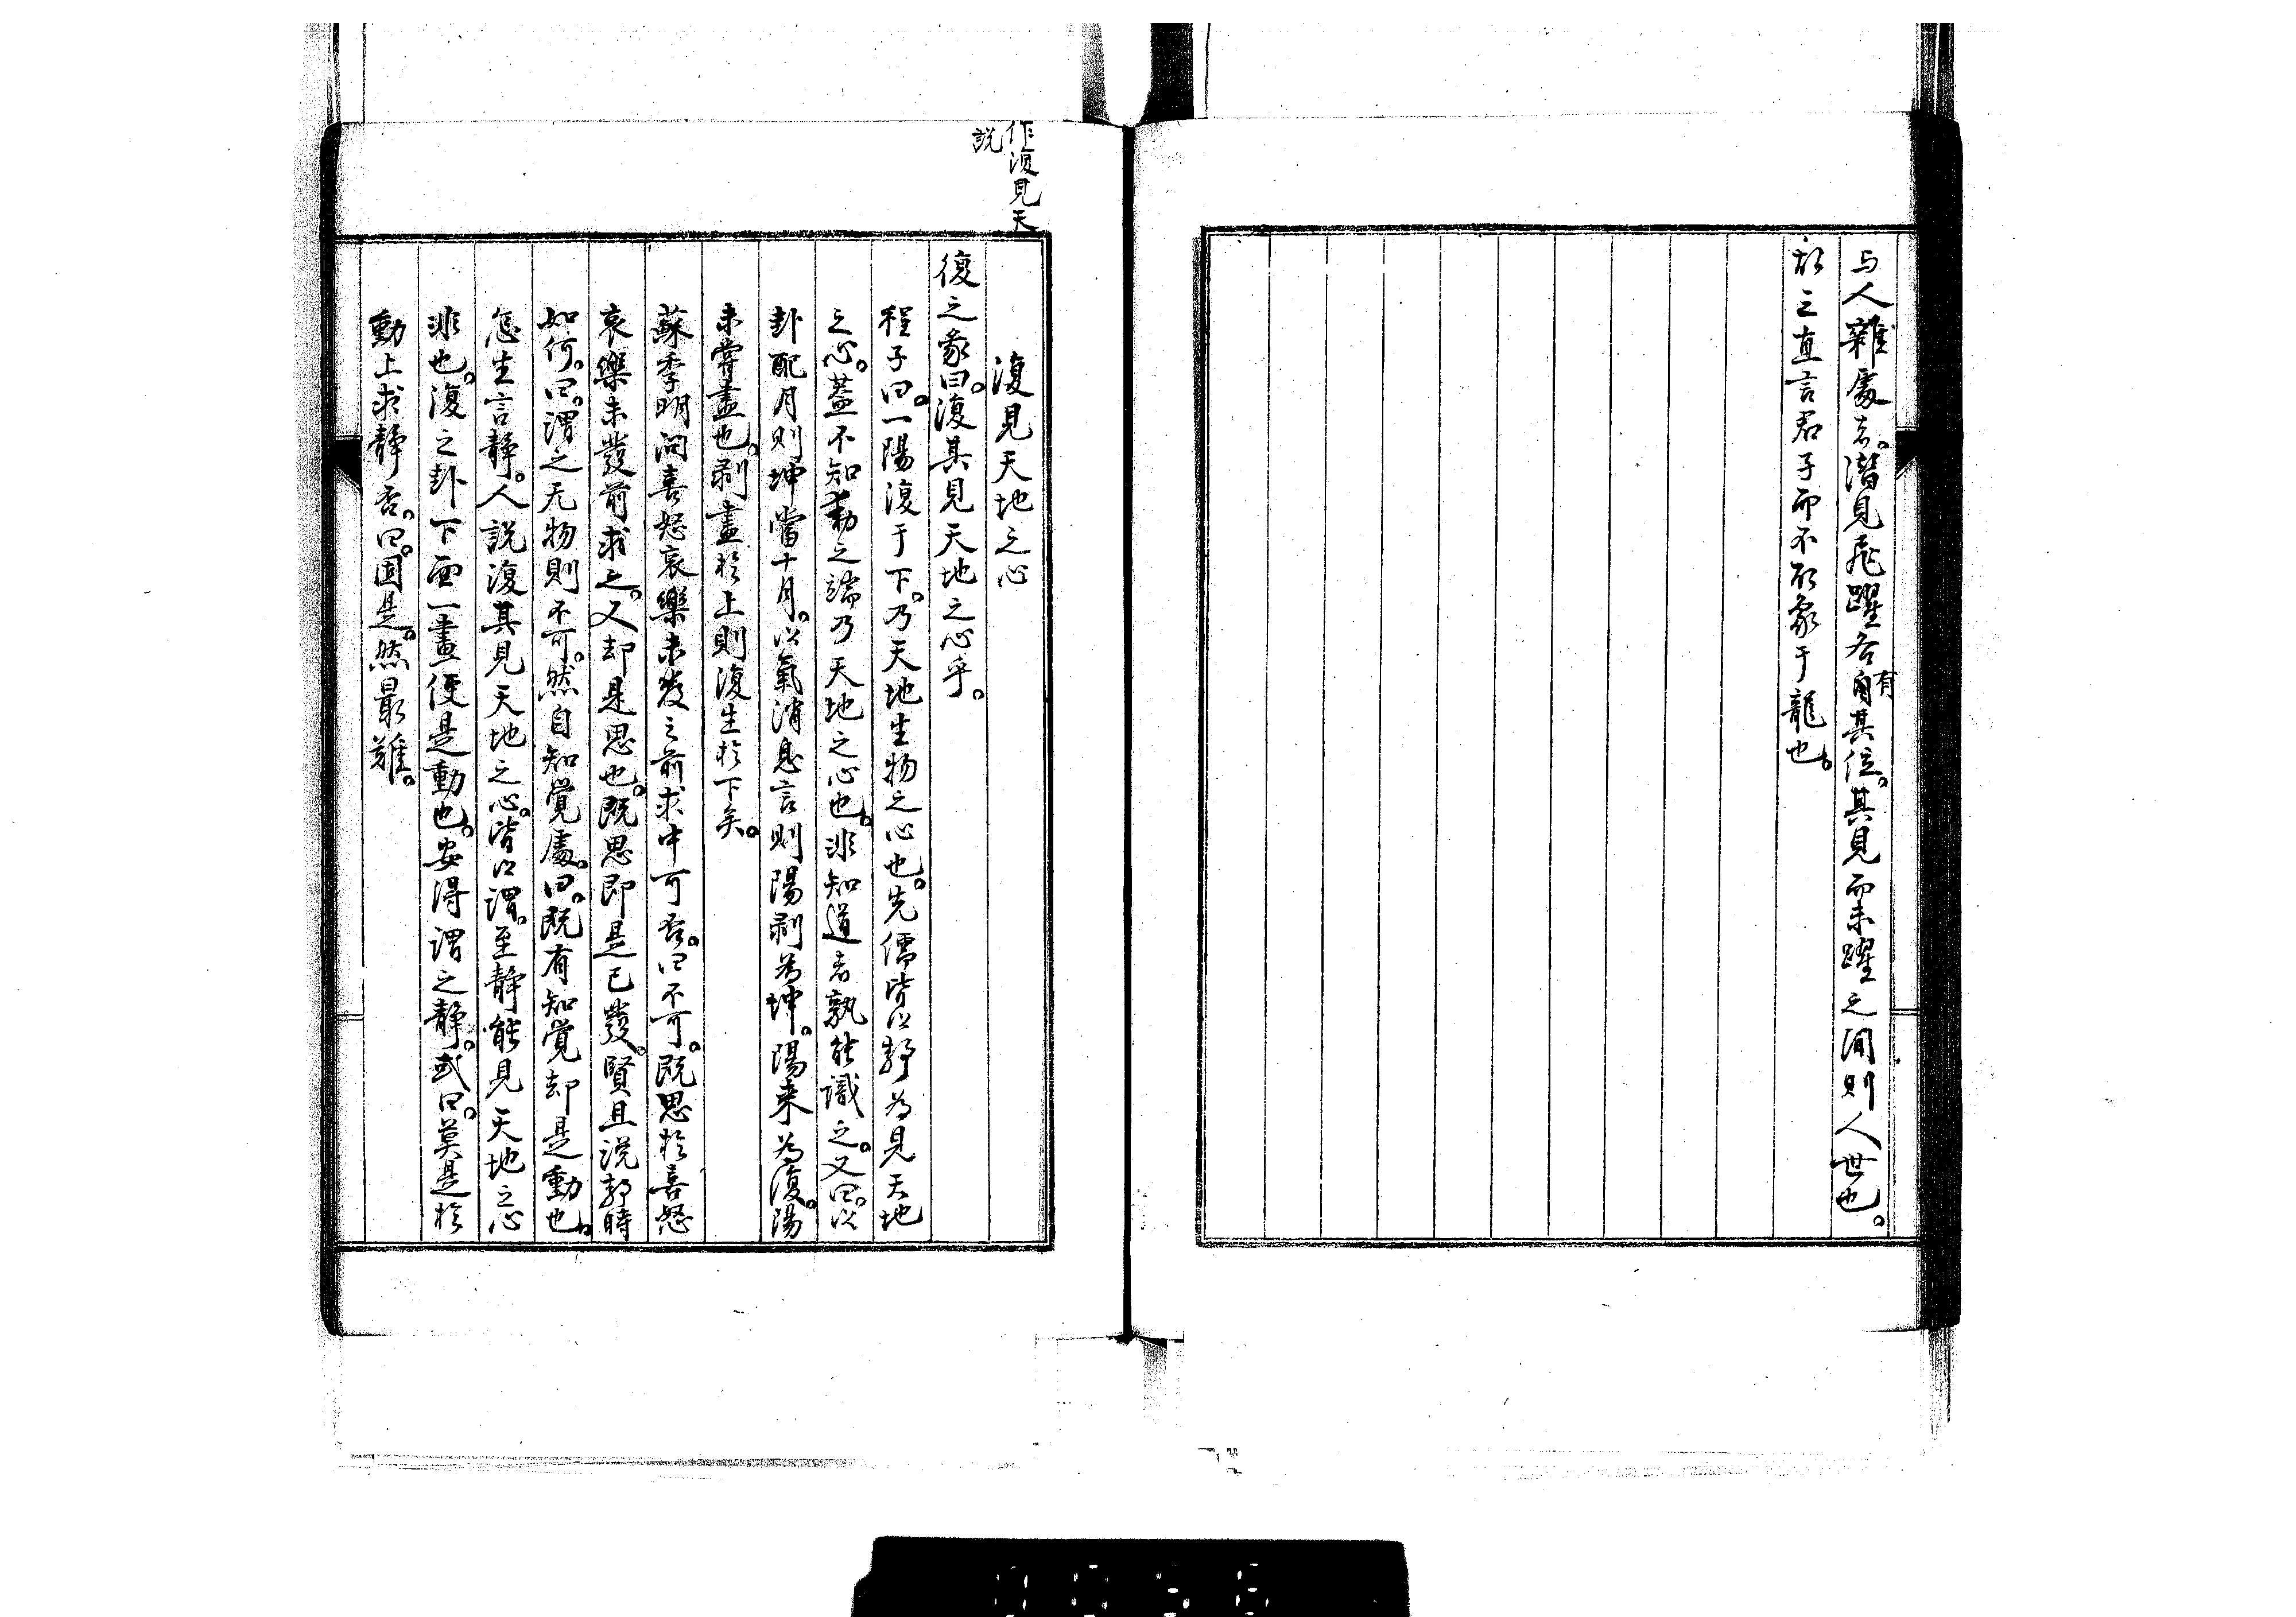 与人雜處者。潛見飛躍各自有其位。其見而未躍之間則人世也。
故三直言君子而不取象于龍也。
作復見天
說
復見天地之心
復之彖曰。復其見天地之心乎。
程子曰。一陽復于下。乃天地生物之心也。先儒皆以靜為見天地
之心。蓋不知動之端乃天地之心也。非知道者孰能識之。又曰。以
卦配月則坤當十月。以氣消息言則陽剥為坤。陽来為復。陽
未嘗盡也。剥盡於上則復生於下矣。
蘇季明問喜怒哀樂未發之前求中可否。曰不可。既思於喜怒
哀樂未發前求之。又却是思也。既思即是已發。賢且說静時
如何。曰。謂之无物則不可。然自知覺處。曰。既有知覺却是動也。
怎生言靜。人說復其見天地之心。皆以謂。至靜能見天地之心
非也。復之卦下面一畫便是動也。安得謂之静。或曰。莫是於
動上求靜否。曰。固是。然最難。